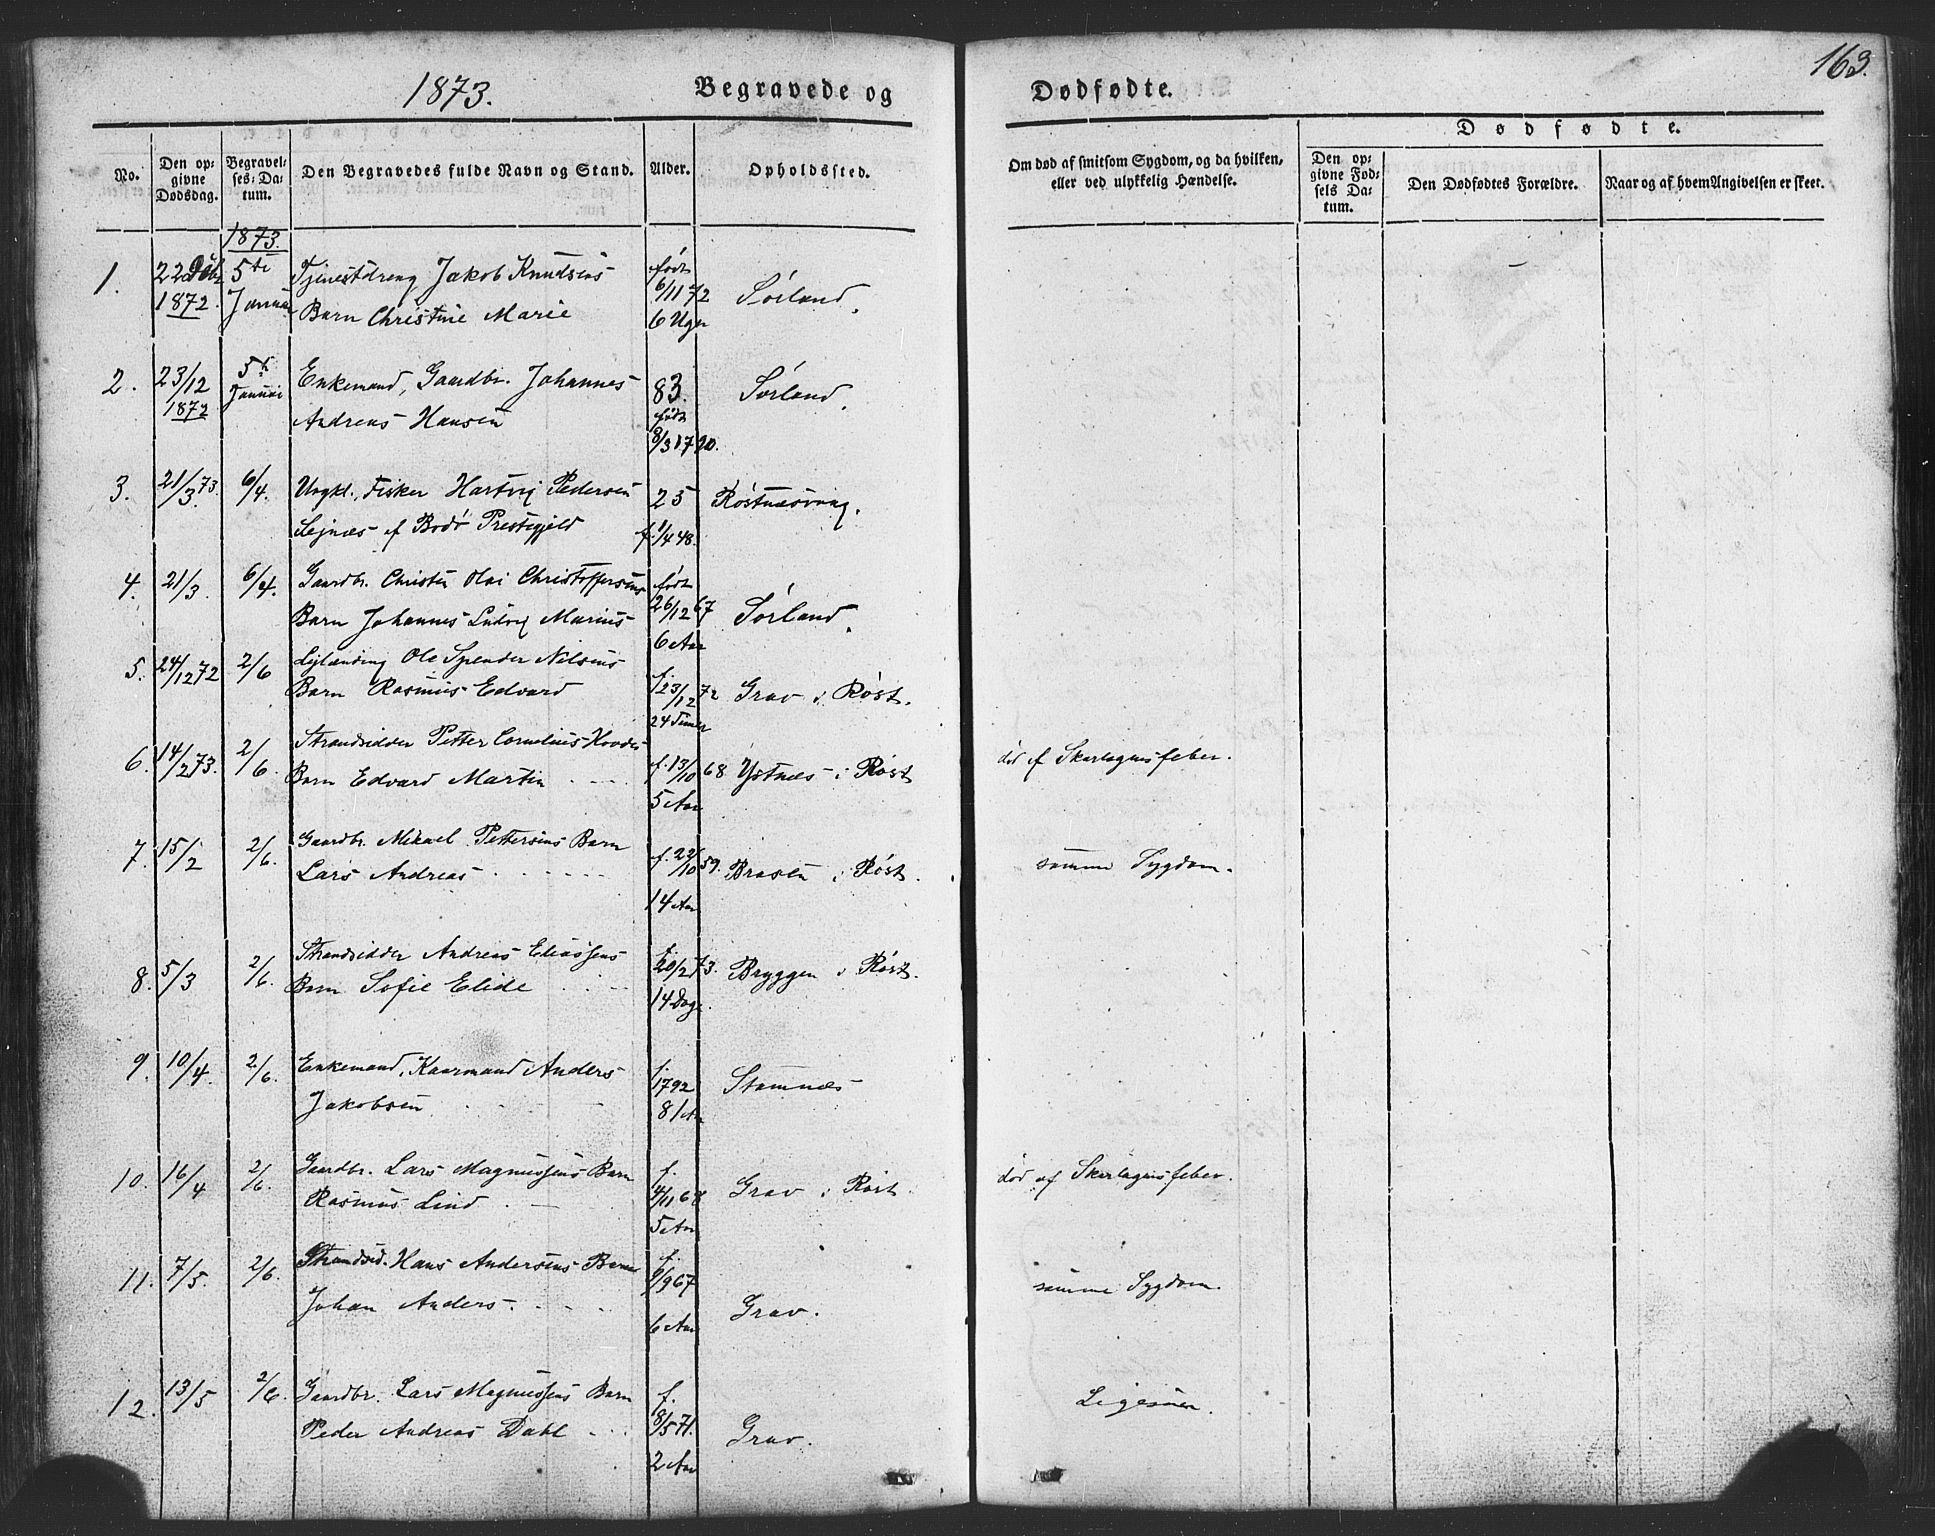 163.
1873.
Begravede og
Dødfødte.
Dødfødte.
No.
Den op-
givne
Dødsdag.
Begravel-
ses-Da-
tum.
Den Begravedes fulde Navn og Stand.
Alder.
Opholdssted.
Om død af smitsom Sygdom, og da hvilken,
eller ved ulykkelig Hændelse.
Den op-
givne Fød-
sels Da-
tum.
Den Dødfødtes Forældre.
Naar og af hvem Angivelsen er skeet.
1873.
1. 22 Dcbr 1872. 5te Januar Tjenestdreng Jakob Knudsens født 6/11 72
Barn Christine Marie 6 Uger Sørland.
2. 23/12 1872 5t Januar Enkemand, Gaardbr. Johannes 83. Sørland.
Andreas Hansen født 8/3 1790.
3. 21/3 73. 6/4. Ungkl. Fisker Hartvig Pedersen 25 Røstnæsvaag.
Sejnæs af Bodø Prestegjeld f. 1/4 48.
4. 21/3. 6/4. Gaardbr. Christen Olai Christoffersens født 26/12 67
Barn Johannes Ludvig Marius 6 Aar Sørland.
5. 24/12 72 2/6 Lejlænding Ole Spender Nilsens f. 23/12 72
Barn Rasmus Edvard 24 Timer Grav i Røst.
6. 14/2 73. 2/6. Strandsidder Petter Cornelius Hovdes f. 13/10 68 Ystnæs i Røst død af Skarlagensfeber.
Barn Edvard Martin 5 Aar
7. 15/2 2/6. Gaardbr. Mikael Pettersens Barn f. 22/10 59. Brasen i Røst. samme Sygdom.
Lars Andreas 14 Aar
8. 5/3 2/6. Strandsidder Andreas Eliassens f. 20/2 73. Bryggen i Røst.
Barn Sofie Elide 14 Dage
9. 10/4. 2/6. Enkemand, Kaarmand Anders f. 1792 Stamnæs
Jakobsen 81 Aar
10. 16/4 2/6. Gaardbr. Lars Magnussens Barn f. 4/11 68 Grav i Røst. død af Skarlagensfeber.
Rasmus Lind 5 Aar
11. 7/5. 2/6. Strandsid. Hans Andersens Barn f. 9/9 67 samme Sygdom.
Johan Anders. 6 Aar Grav.
12. 13/5 2/6. Gaardbr. Lars Magnussens Barn f. 8/5 71. Ligesaa.
Peder Andreas Dahl 2 Aar Grav.